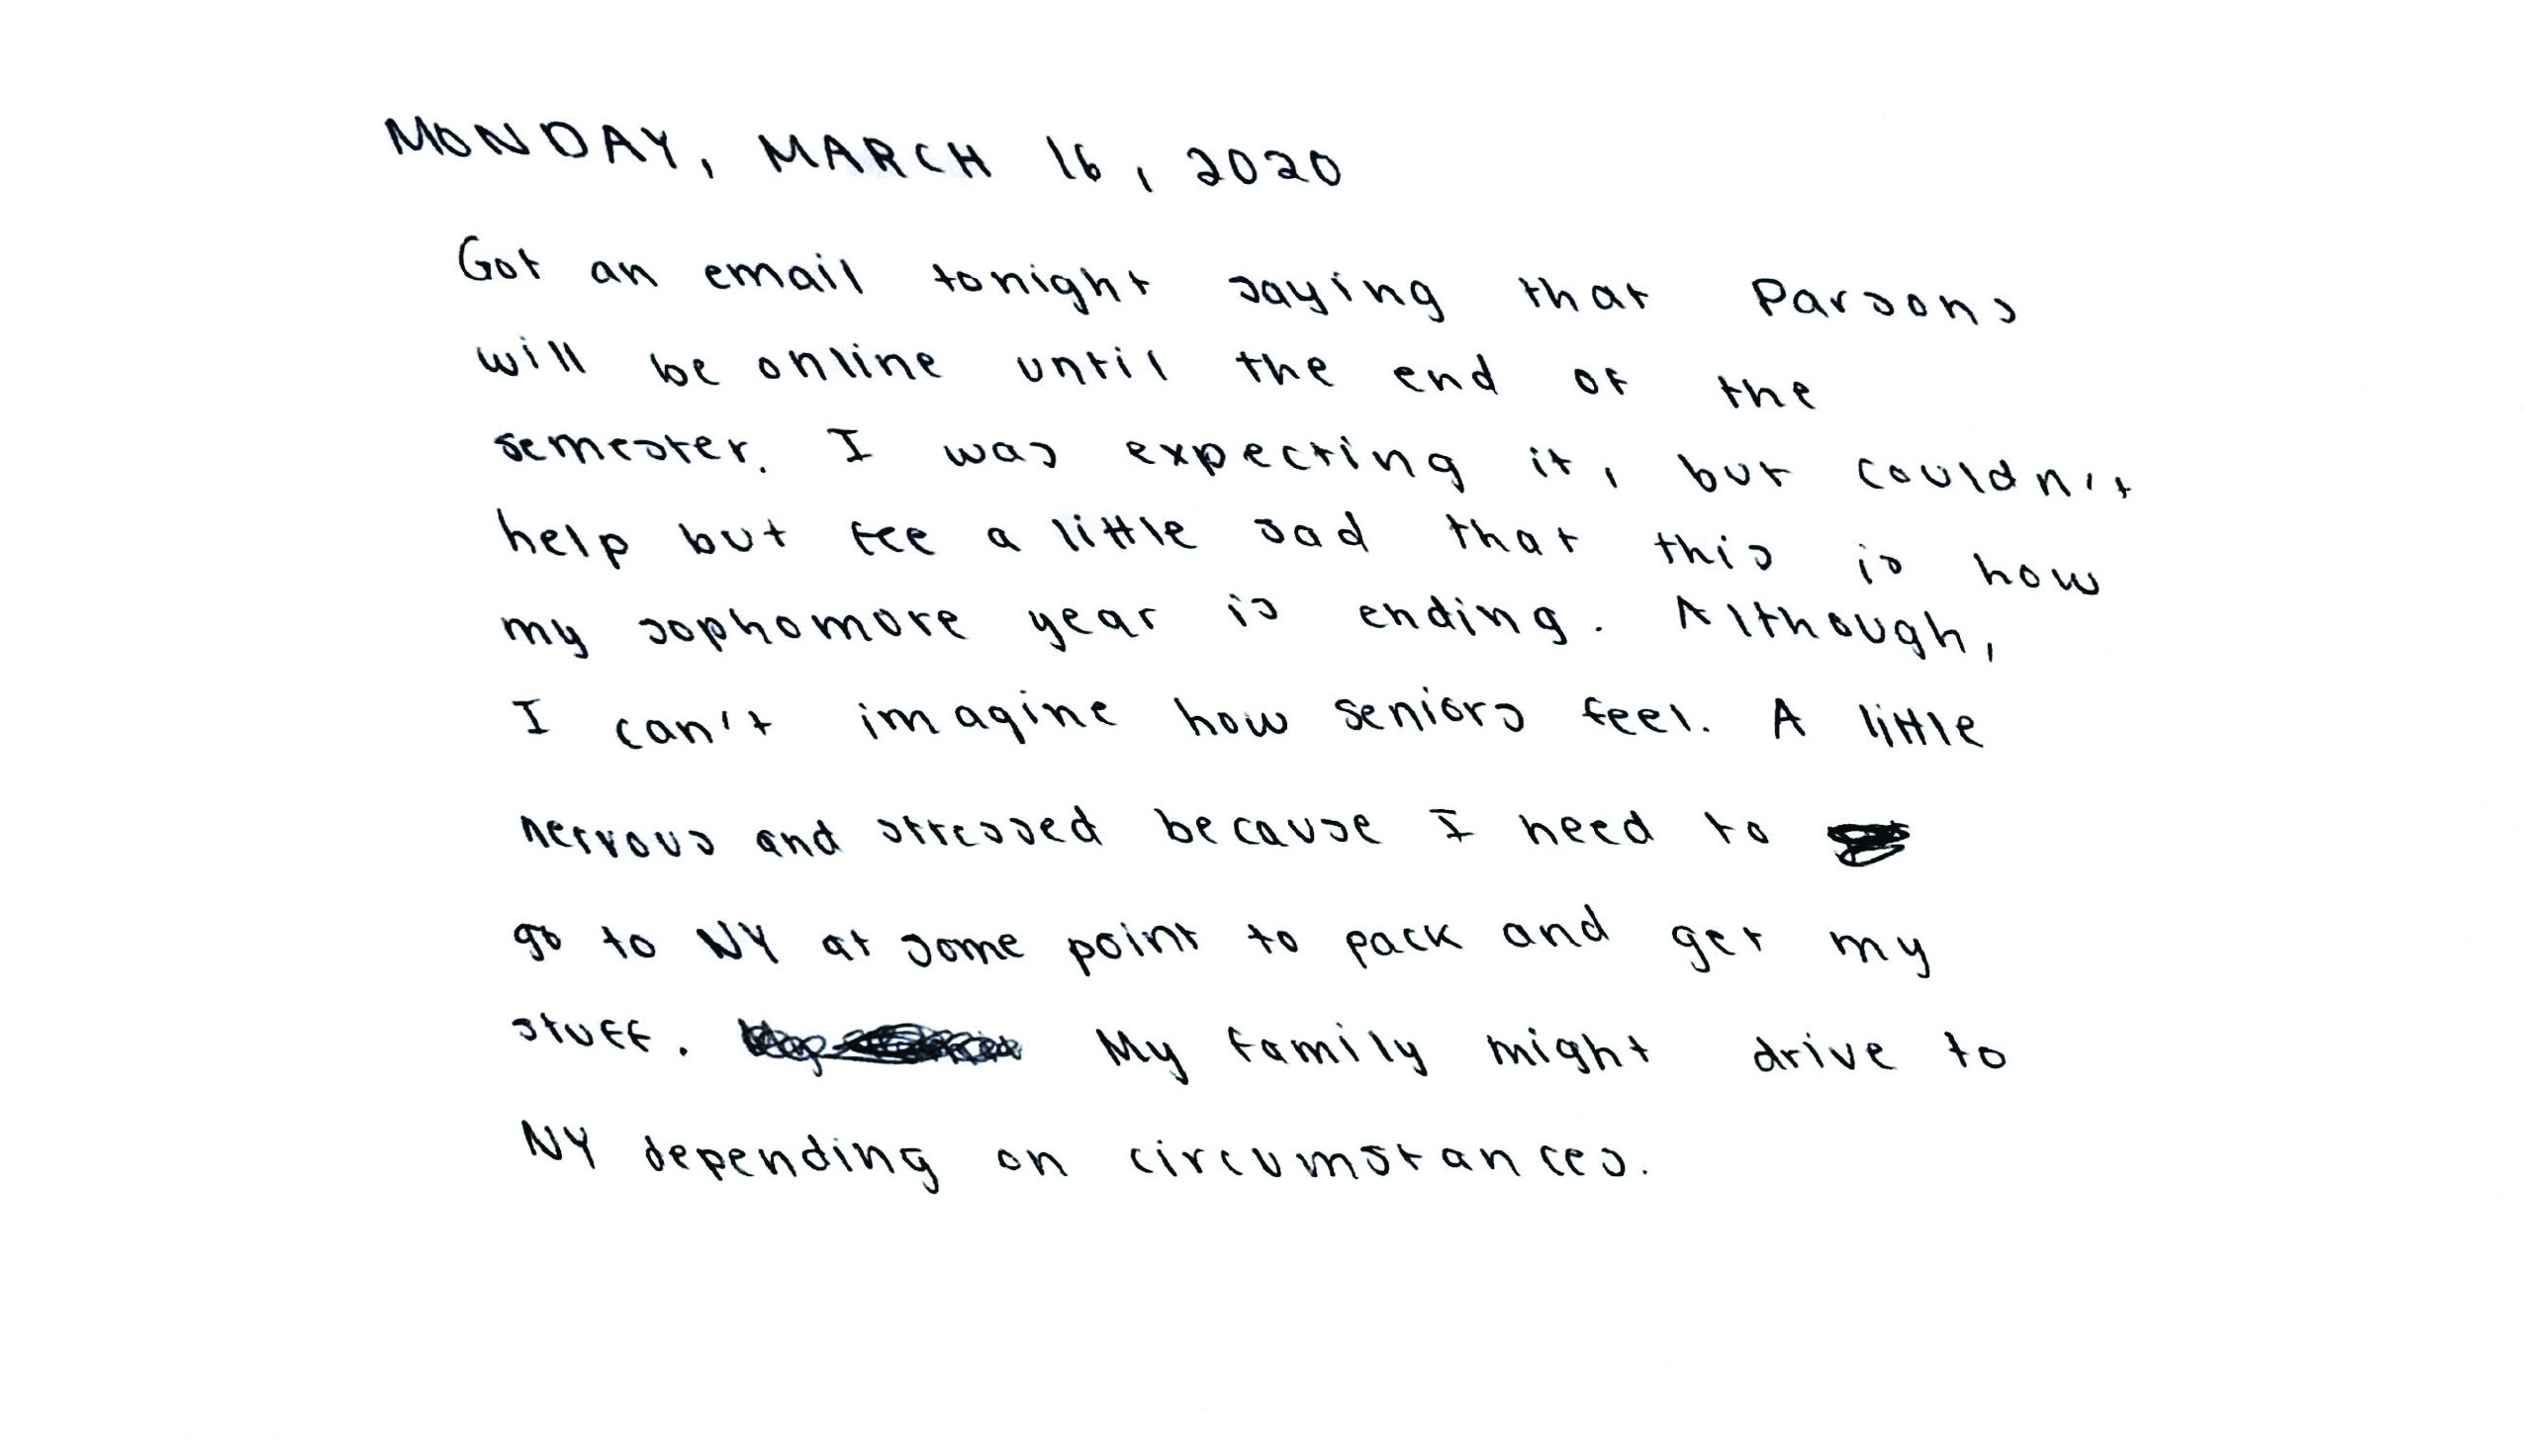 MONDAY, MARCH 16, 2020
Got an email tonight saying that Parsons
will be online until the end of the
semester. I was expecting it, but couldn't
help but fee a little sad that this is how
my sophomore year is ending. Although,
I can't imagine how seniors feel. A little
nervous and stressed because I need to
go to NY at some point to pack and get my
stuff. My family might drive to
NY depending on circumstances.